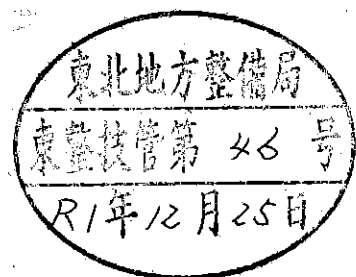 東北地方整備局
東整技管第 46 号
R1年12月25日